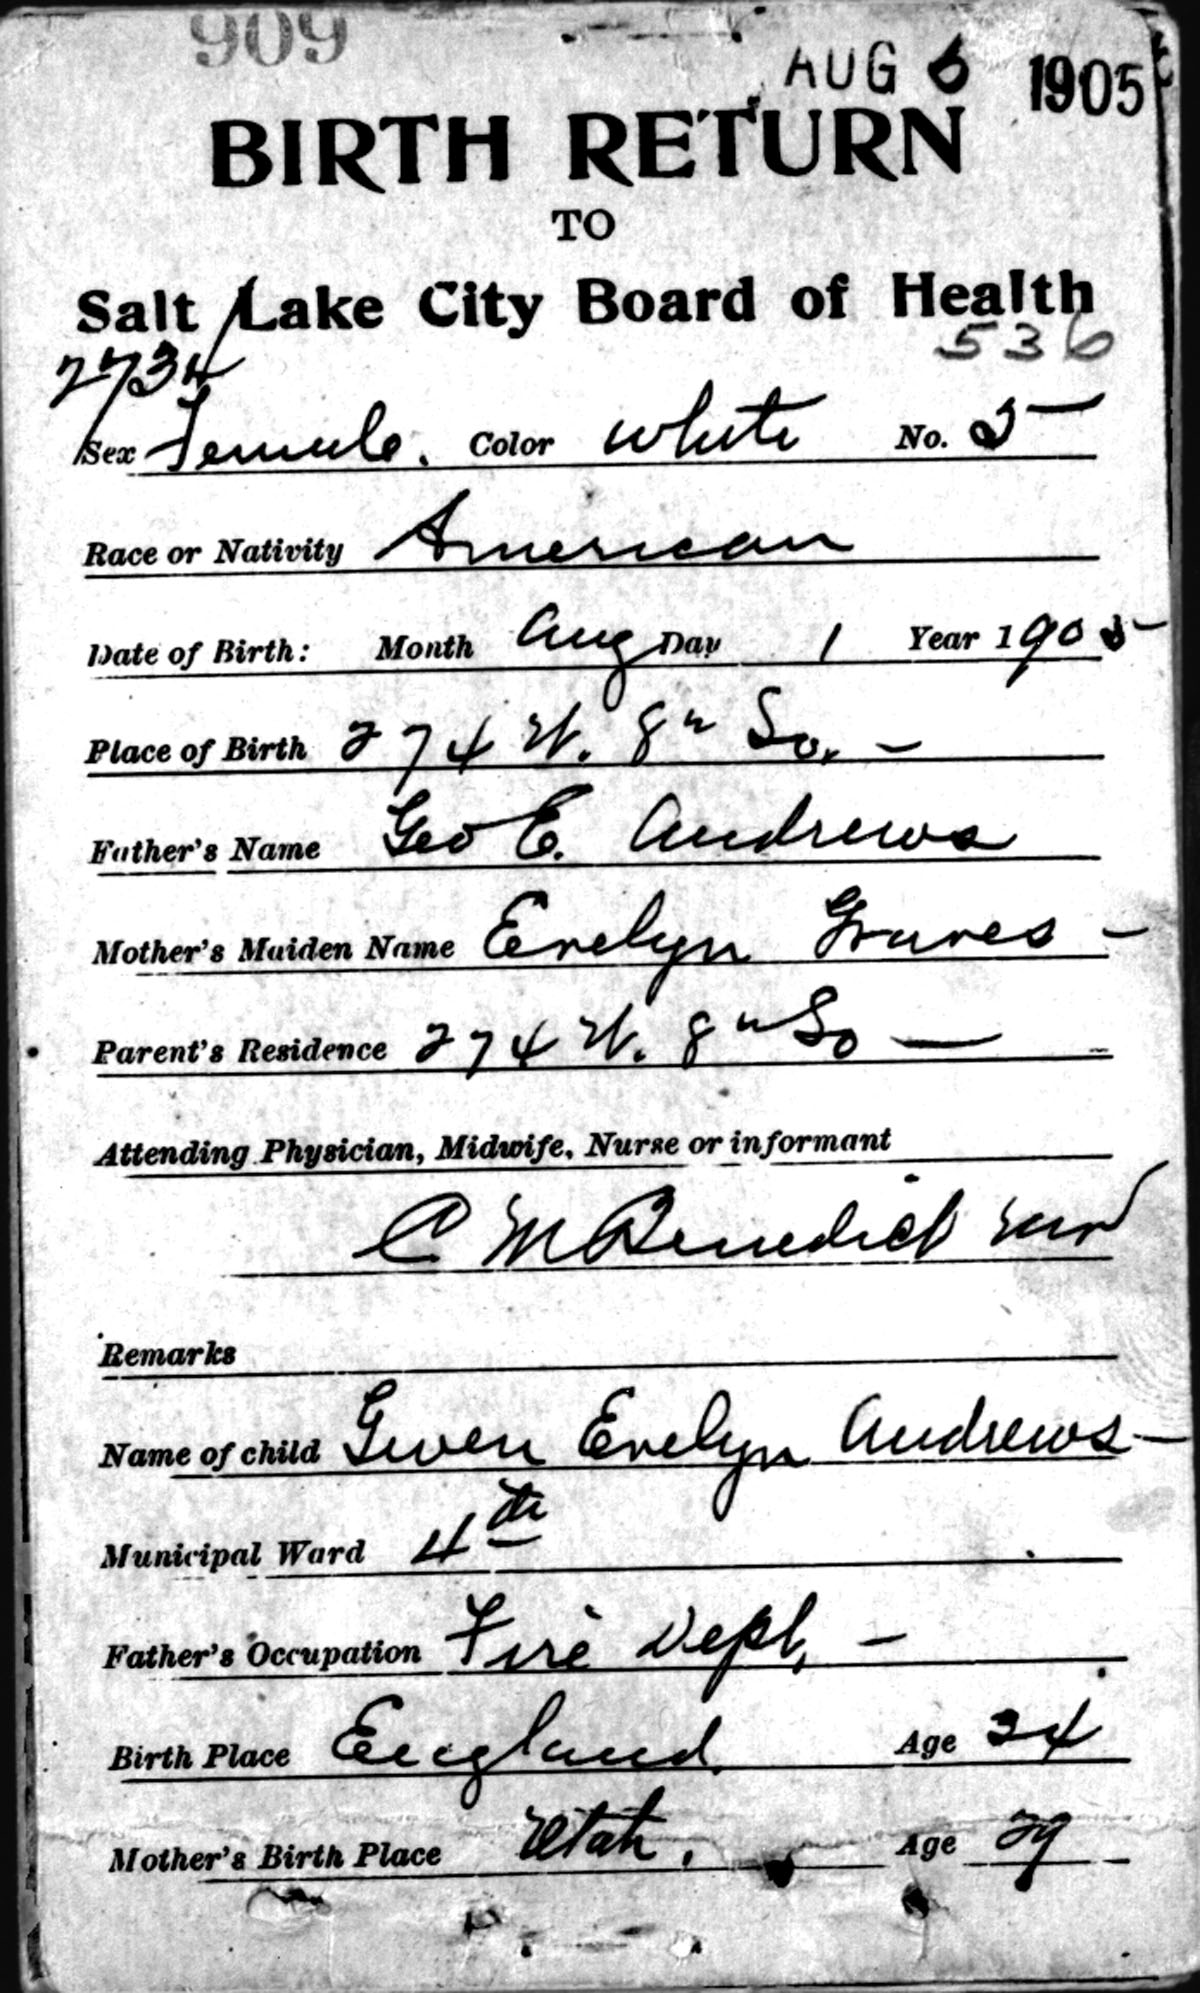 909
AUG 6 1905
BIRTH RETURN
TO
Salt Lake City Board of Health
536
2734
Sex Female. Color White No. 5
Race or Nativity American
Date of Birth: Month Aug Day 1 Year 1905
Place of Birth 274 W. 8th So. —
Father's Name Geo E. Andrews
Mother's Maiden Name Evelyn Graves —
Parent's Residence 274 W. 8th So —
Attending Physician, Midwife, Nurse or informant
C M Benedict MD
Remarks
Name of child Gwen Evelyn Andrews —
Municipal Ward 4th
Father's Occupation Fire Dept, —
Birth Place England Age 34
Mother's Birth Place Utah. Age 29